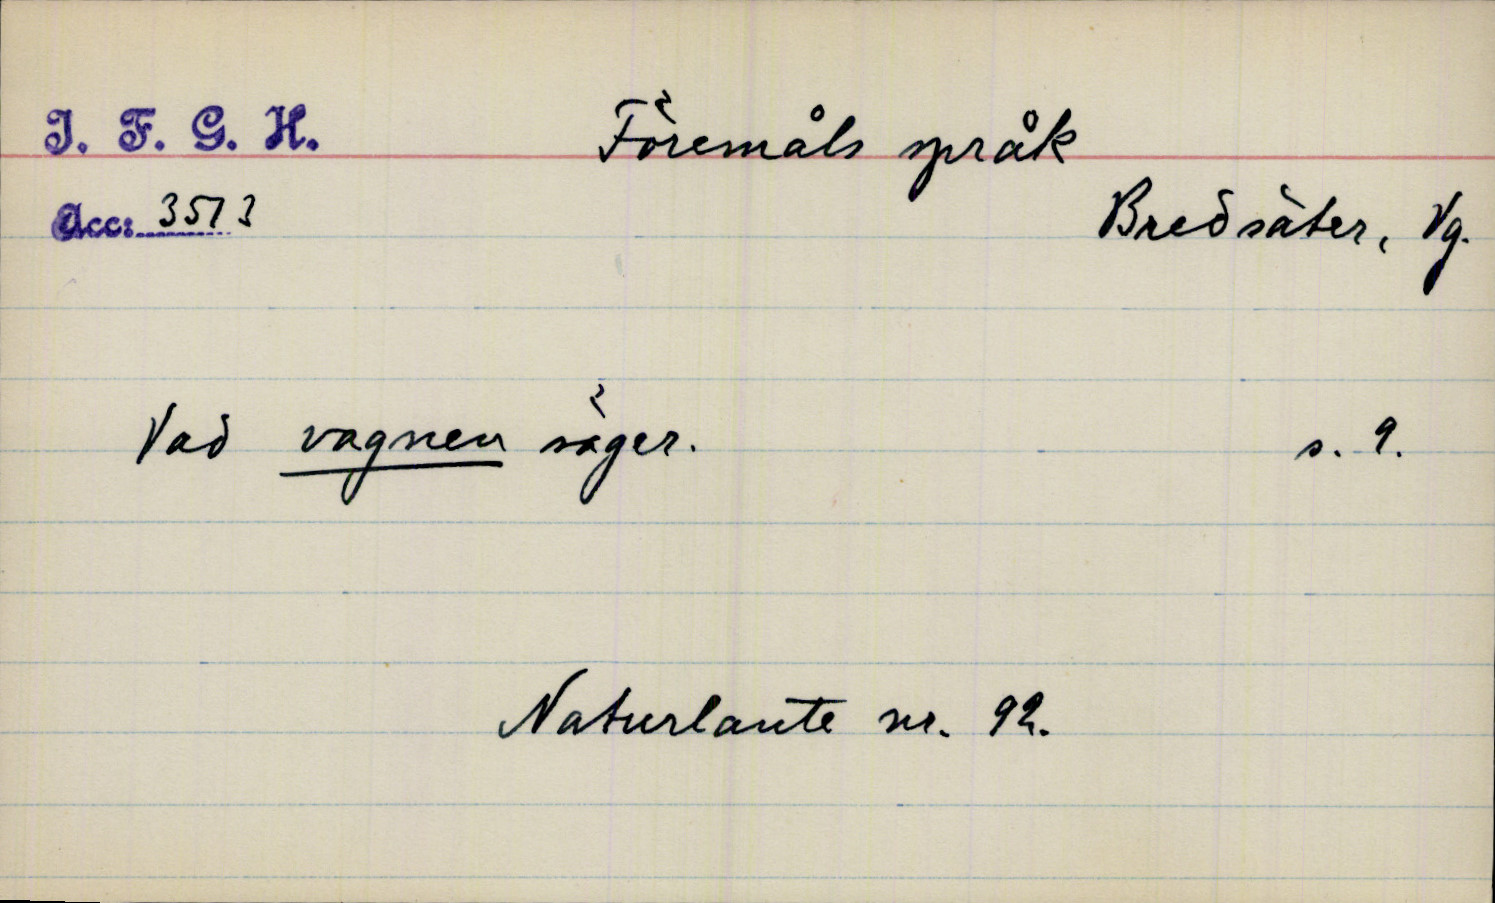 I. F. G. H.
Föremåls språk
Acc: 3513
Bredsäter, Vg.
Vad vagnen säger. s. 9.
Naturlaute nr. 92.